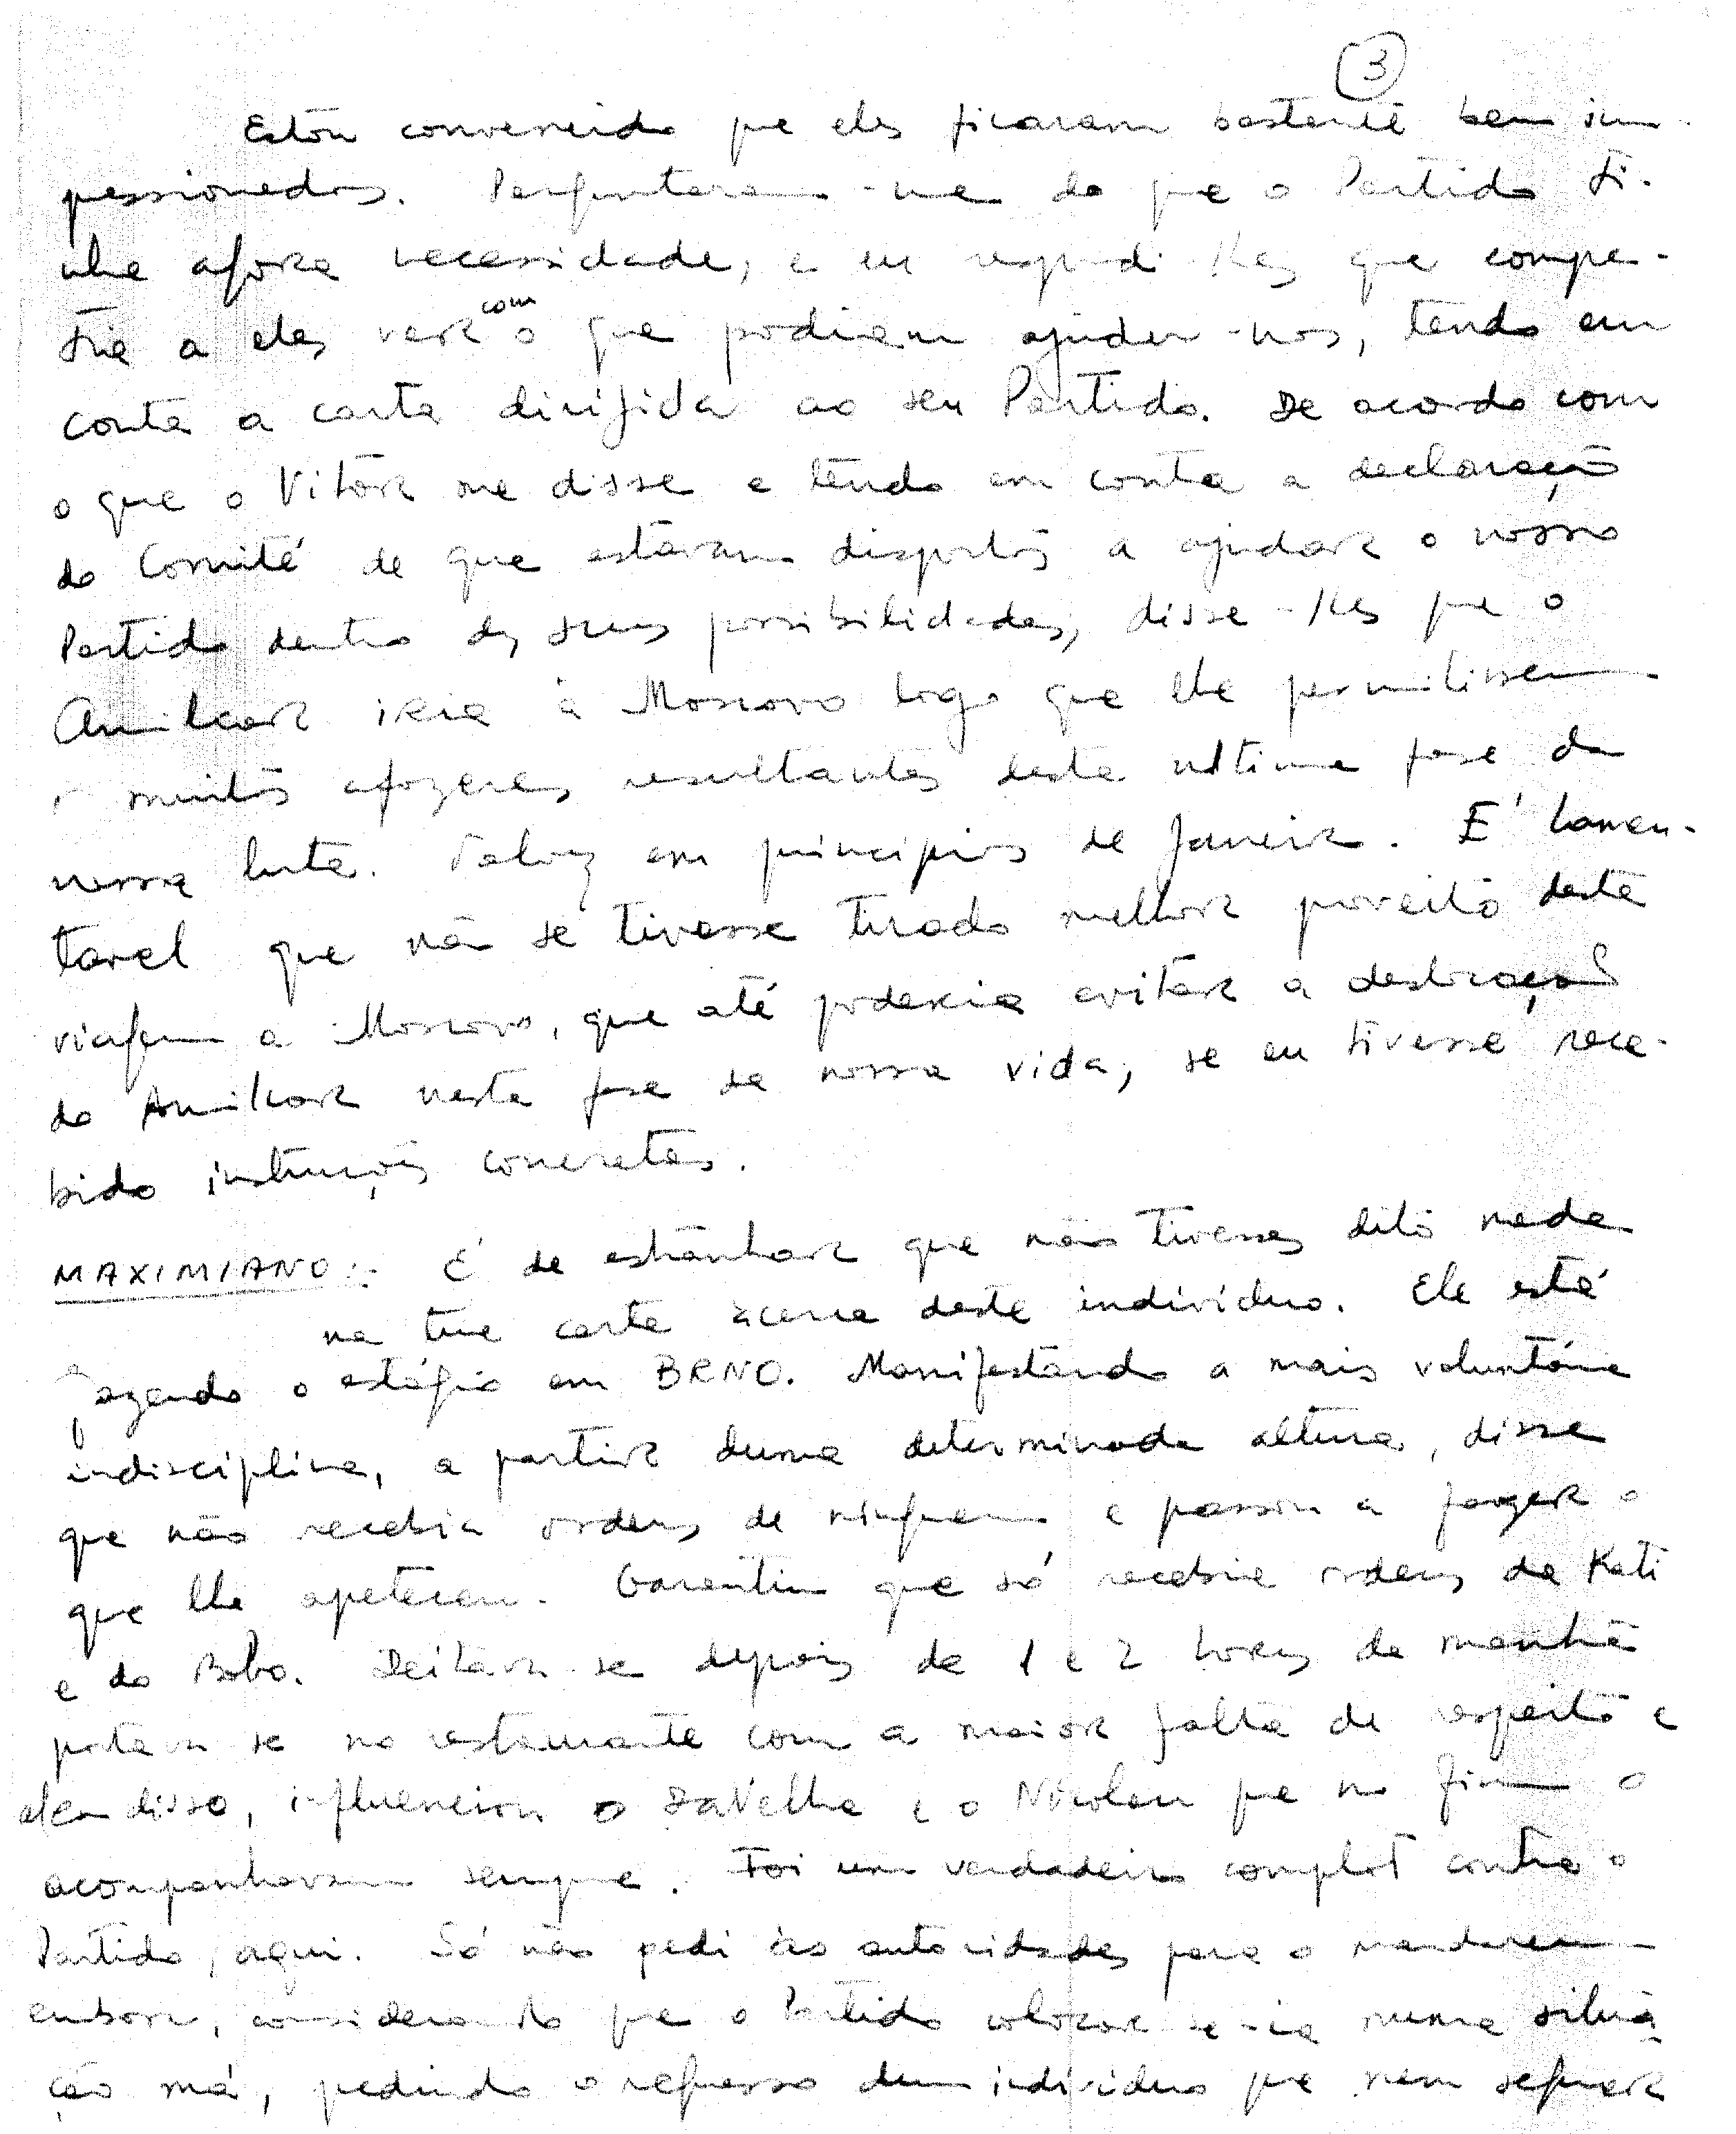 3
Estou convencido que eles ficaram bastante bem im-
pressionados. Perguntaram-me do que o Partido ti-
nha agora necessidade, e eu respondi-lhes que compe-
tia a eles ver com o que podiam ajudar-nos, tendo em
conta a carta dirigida ao seu Partido. De acordo com
o que o Vitor me disse e tendo em conta a declaração
do Comité de que estavam dispostos a ajudar o nosso
Partido dentro das suas possibilidades, disse-lhes que o
Amilcar iria à Moscovo logo que lhe permitissem
os muitos afazeres resultantes desta ultima fase da
nossa luta. Talvez em principios de Janeiro. É lamen-
tavel que não se tivesse tirado melhor proveito desta
viagem a Moscovo, que até poderia evitar a deslocação
do Amilcar nesta fase da nossa vida, se eu tivesse rece-
bido instruções concretas.
MAXIMIANO:- É de estranhar que não tivesses dito nada
na tua carta àcerca deste individuo. Ele está
fazendo o estágio em BRNO. Manifestando a mais voluntária
indisciplina, a partir duma determinada altura, disse
que não recebia ordens de ninguem e passou a fazer o
que lhe apeteceu. Garantiu que só recebia ordens da Kati
e do Bobo. Deitava-se depois de 1 e 2 horas da manhã
portava-se no restaurante com a maior falta de respeito e
alem disso, influenciou o SaVelha e o Nicolau que no fim o
acompanhavam sempre. Foi um verdadeiro complot contra o
Partido, aqui. Só não pedi às autoridades para o mandarem
embora, considerando que o Partido colocar-se-ia numa situa-
ção má, pedindo o regresso dum individuo que nem sequer